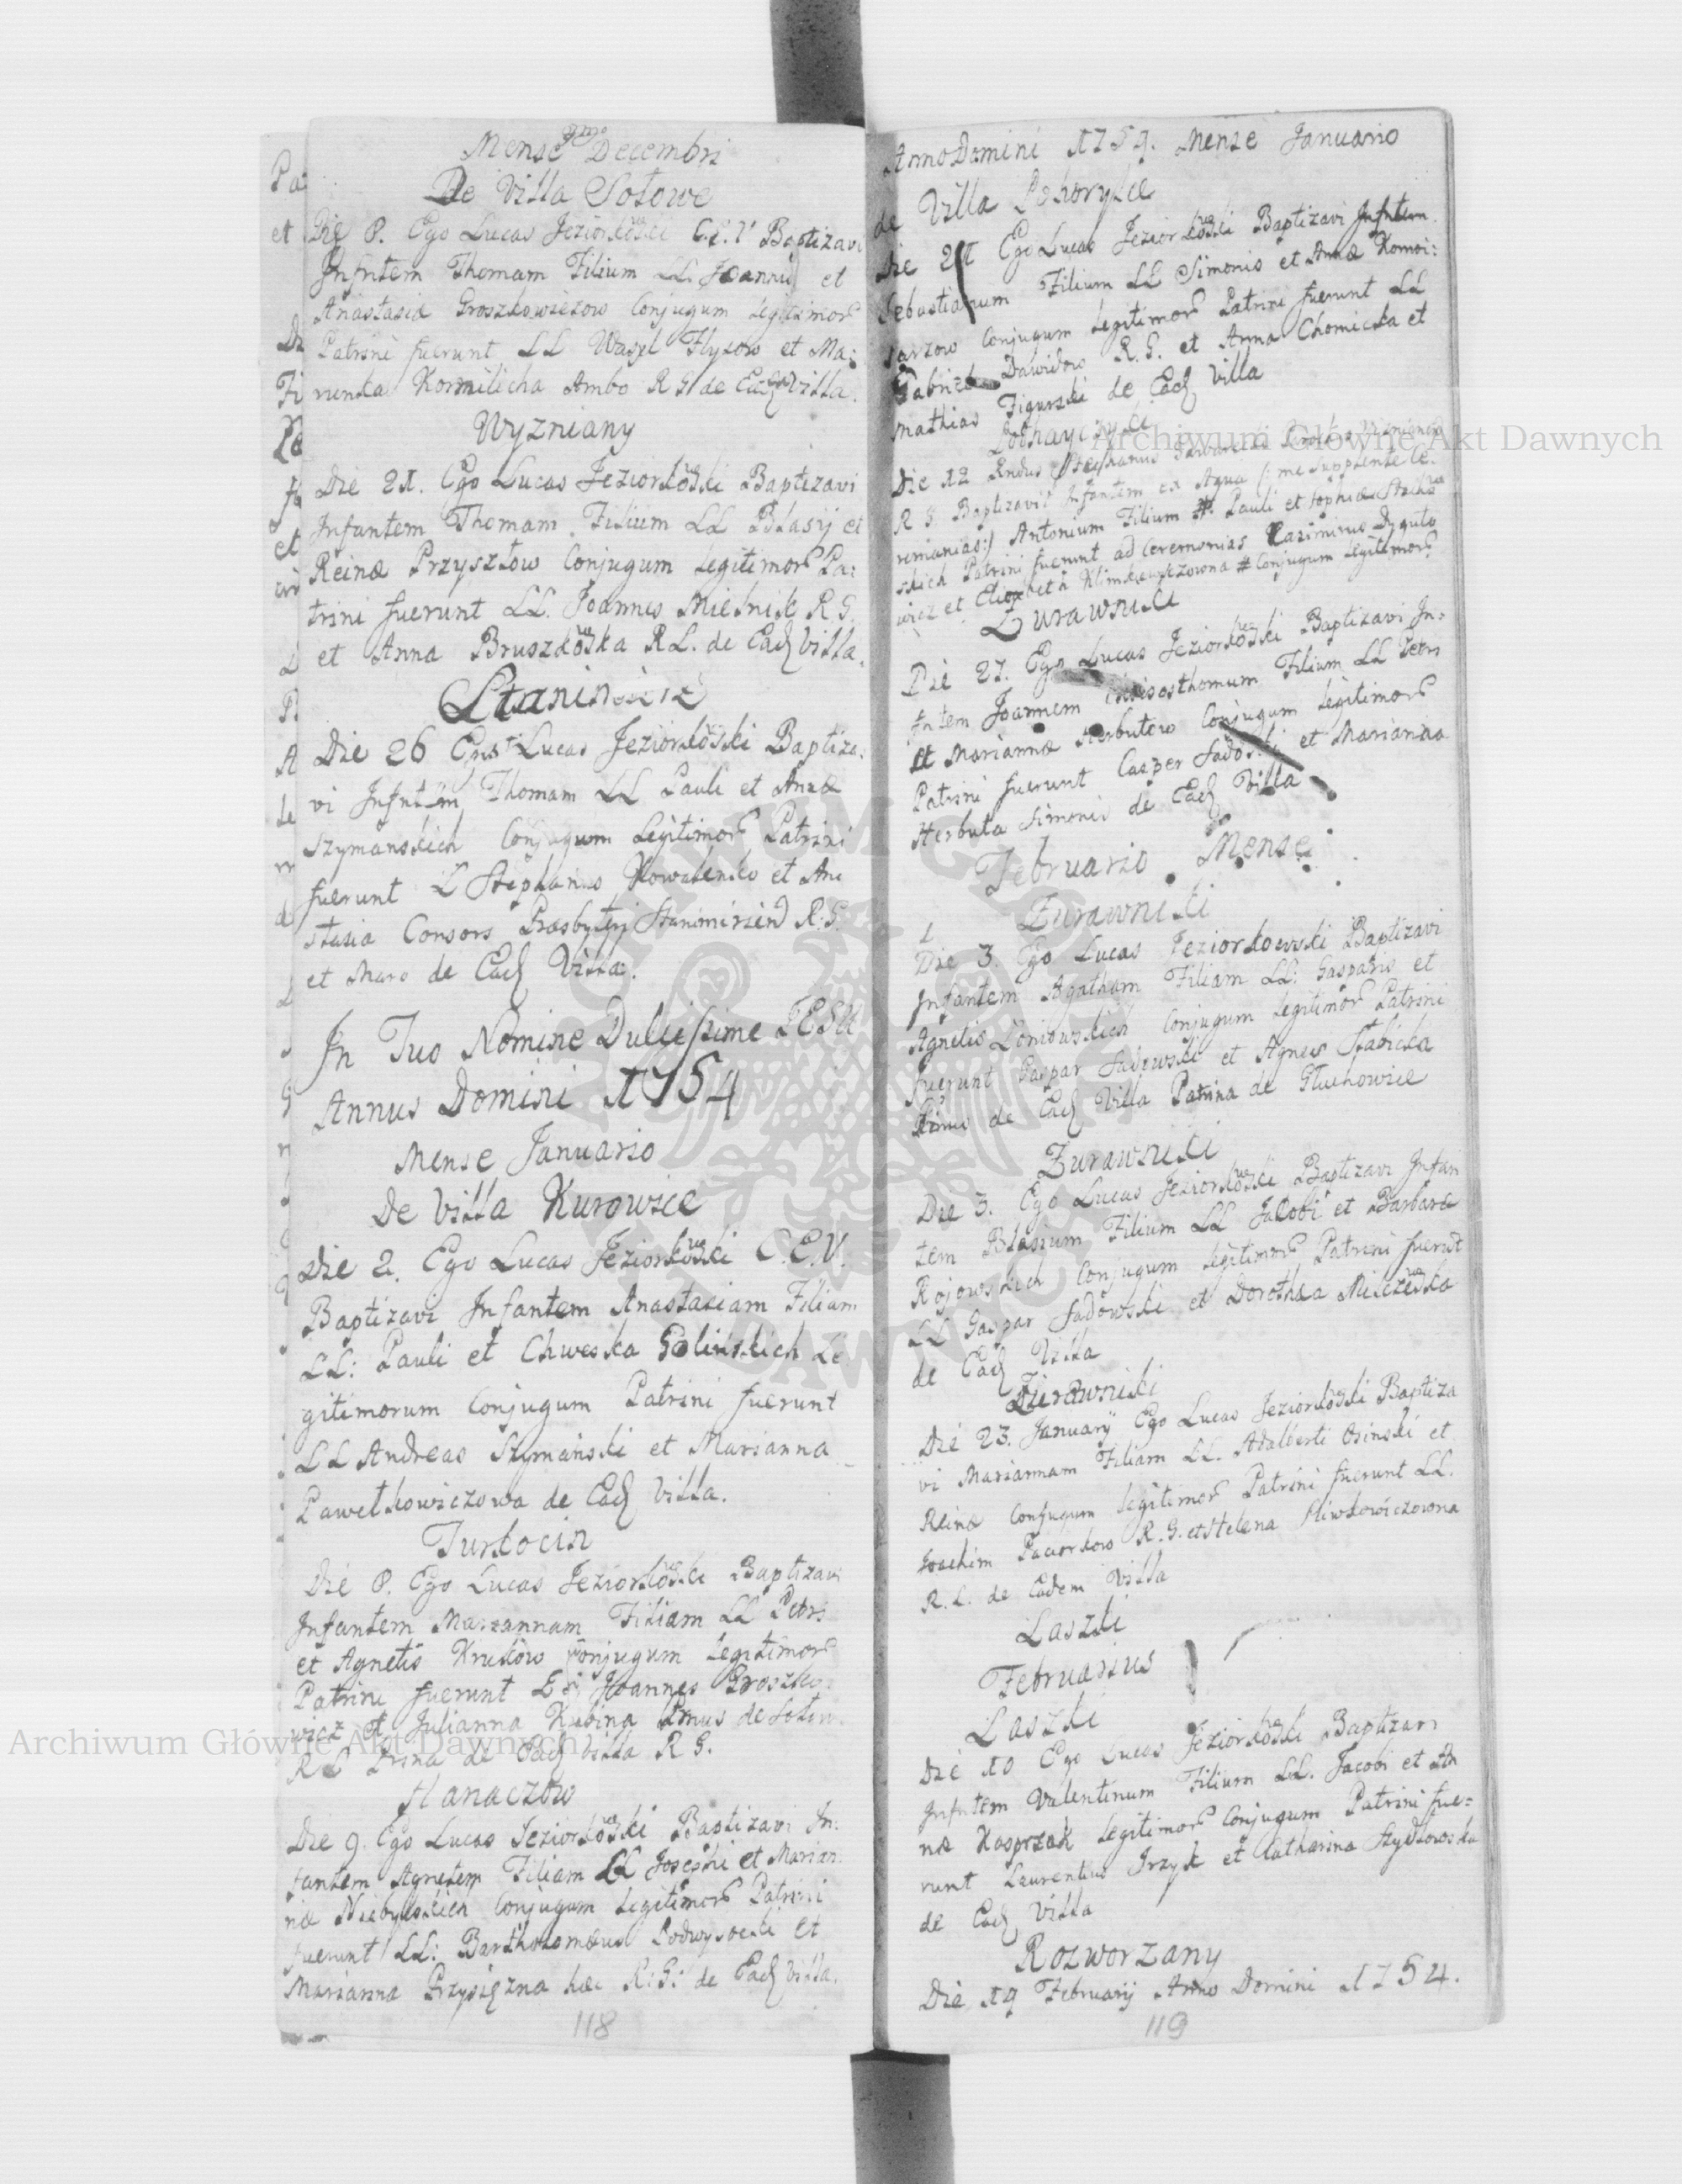 Mense Decembri
De Villa Sołowe
Die 8. Ego Lucas Jeziorkowski C.E.V Baptizavi
Infntem Thomam Filium LL Joannis et
Anastasiæ Groszkowiczow Conjugum legitimor
Patrini fuerunt LL Wasyl Hlysow et Ma:
runka Kormilicha Ambo R G de Eadẽ Villa.
Wyzniany
Die 21. Ego Lucas Jeziorkowski Baptizavi
Infantem Thomam Filium LL Blasij et
Reinæ Przyszłow Conjugum legitimor Pa:
trini fuerunt LL. Joannes Mielnik R G.
et Anna Bruszkowska R L. de Eadẽ Villa.
Die 26 Lucas Jeziorkowski Baptiza:
vi Infntem Thomam LL Pauli et Annæ
Szymanskich Conjugum Legitimor Patrini
fuerunt L Stephanus Kowalenko et Ana
stasia Consors Præsbyterj R: G.
et Maro de Eadẽ Villa.
In Tuo Nomine Dulcissime IESU
Annus Domini 1754
Mense Januario
De Villa Kurowice
Die 2. Ego Lucas Jeziorkowski C.E.V.
Baptizavi Infantem Anastasiam Filiam
LL: Pauli et Chweska Golinskich Le
gitimorum Conjugum Patrini fuerunt
LL Andreas Szymański et Marianna
Pawełkowiczowa de Eadẽ Villa.
Turkocin
Die 8. Ego Lucas Jeziorkowski Baptizavi
Infantem Mariannam Filiam LL Petri
et Agnetis Krukow Conjugum Legitimor
Patrini fuerunt Joannes Groszko:
wicz et Julianna Kubina de
R L de Eadẽ Villa R G.
Hanaczow
Die 9. Ego Lucas Jeziorkowski Baptizavi In:
fantem Agnetem Filiam LL Josephi et Marian
næ Niebylskich Conjugum Legitimor Patrini
fuerunt LL: Bartholomæus Podwysocki et
Marianna Przysięzna hæc R: G: de Eadẽ Villa.
118
Anno Domini 1754. Mense Januario
de Villa Pohorylce
Die 21 Ego Lucas Jeziorkowski Baptizavi Infntem
Sebastianum Filium LL Simonis et Annæ Komi:
sarzow Conjugum Legitimor Patrini fuerunt LL
Gabriel Dawidow R. G. et Anna Chomicka et
Mathias Figurski de Eadẽ Villa
Die 12 Rndus Stephanus
R G Baptizavit Infantem ex Aqua (: me supplente Ce
remonias:) Antonium Filium # Pauli et Sophiæ
skich Patrini fuerunt ad Ceremonias Casimirus
wicz et Elisabeth Klimkiewiczowna # Conjugum Legitimor
Zurawniki
Die 27. Ego Lucas Jeziorkowski Baptizavi In:
fntem Joannem Chrisosthomum Filium LL Petri
et Mariannæ Herbutow Conjugum Legitimor
Patrini fuerunt Casper Sadoski et Marianna
Herbuta Simonis de Eadẽ Villa
Februario Mense
Zurawniki
Die 3. Ego Lucas Jeziorkowski Baptizavi
Infantem Agatham Filiam LL: Gasparis et
Agnetis Loniowskich Conjugum Legitimor Patrini
fuerunt Gaspar Sadowski et Agnes Słabicka
de Eadẽ Villa Patrina de Gluchowice
Zurawniki
Die 3. Ego Lucas Jeziorkowski Baptizavi Infan
tem Blasium Filium LL Jacobi et Barbaræ
Rojowskich Conjugum Legitimor Patrini fuerut
LL Gaspar Sadowski et Dorothea Milczewska
de Eadẽ Villa
Zurawniki
Die 23. Januarij Ego Lucas Jeziorkowski Baptiza
vi Mariannam Filiam LL. Adalberti Osinski et
Reinæ Conjugum Legitimor Patrini fuerunt LL.
Joachim Paciorkow R. G. et Helena Sliwkowiczowna
R. L. de Eadem Villa
Laszki
Februarius
Laszki
Die 10 Ego Lucas Jeziorkowski Baptizavi
Infntem Valentinum Filium LL. Jacobi et An
næ Kasprzak Legitimor Conjugum Patrini fue:
runt Laurentius Irzyk et Catharina Szydłowska
de Eadẽ Villa
Rozworzany
Die 19 Februarij Anno Domini 1754.
119
Archiwum Główne Akt Dawnych
Archiwum Główne Akt Dawnych